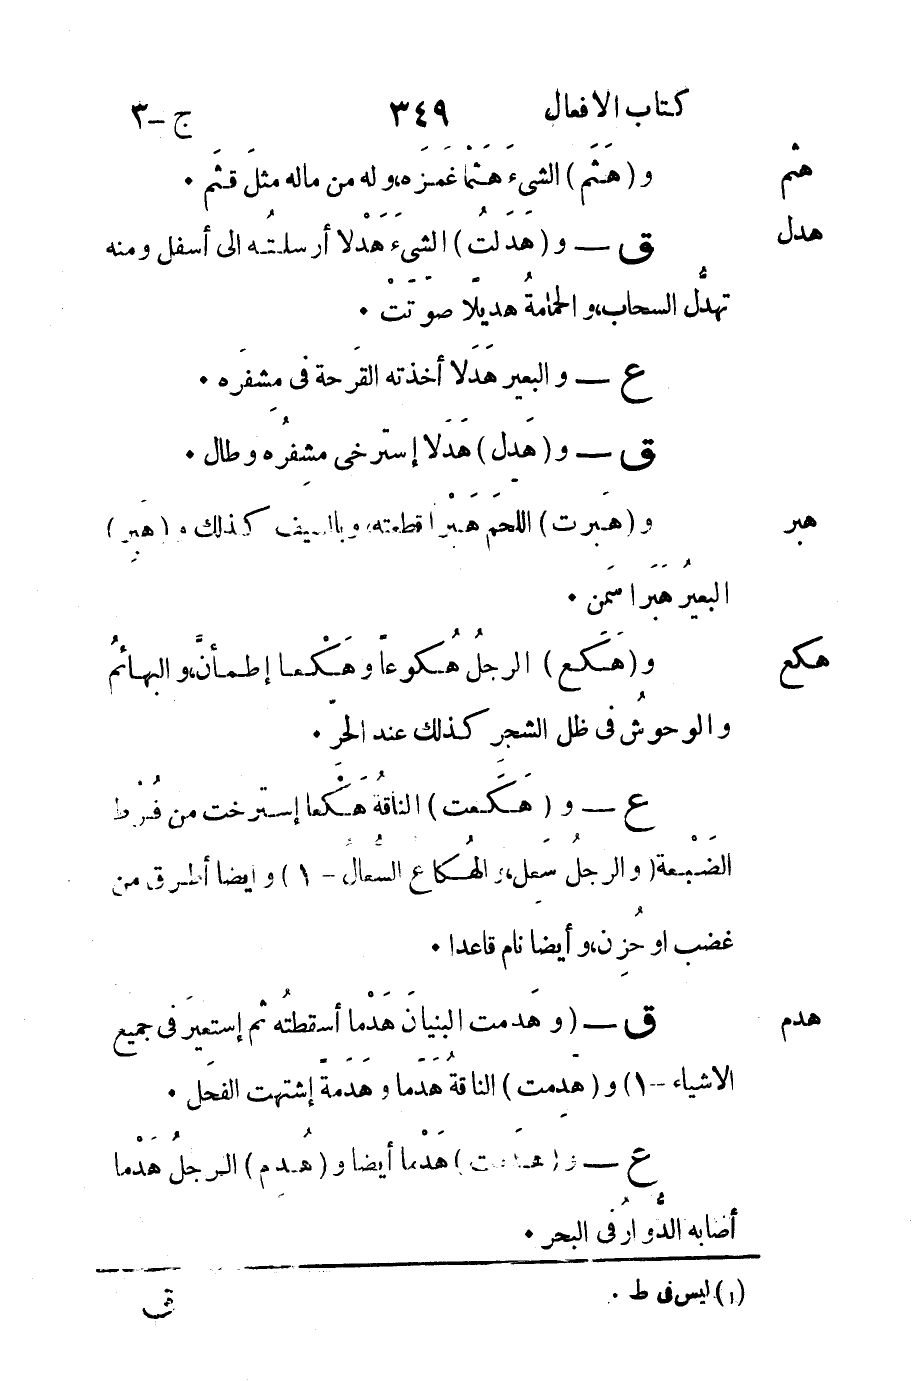 كتاب الافعال ٣٤٩ ج-٣
هثم و (هَثَم) الشىءَ هَثْما غمَزه،وله من ماله مثلَ قثَم •
هدل ق — و (هَدَلتُ) الشىءَ هَدْلا أرسلتُه الى أسفل ومنه
تهدُّل السحاب،والحمامةُ هديلًا صَوّتَتْ •
ع — والبعير هَدَلا أخذته القَرحة فى مِشفَره •
ق — و (هَدِل) هَدَلا إستَرخى مِشفُره وطال •
هبر و (هَبَرت) اللحَم هَبْرا قطعته، وبالسيف كذلك و (هَبِر)
البعيرُ هَبَرا سَمن •
هكع و (هَكَع) الرجلُ هُكوعاً وهَكْعا إطمأنَّ،والبهائمُ
والوحوشُ فى ظل الشجرِ كذلك عند الحرّ •
ع — و (هَكَعت) الناقةُ هَكْعا إستَرخت من فُرْط
الضَبْعة(والرجلُ سَعِل، والهُكاع السُّعالُ - ١) وايضا أطرق من
غضب او حُزِن،وأيضا نام قاعدا •
هدم ق — (وهَدمت البنيانَ هَدْما أسقطتُه ثم إستعيرَ فى جميع
الاشياء -١) و (هَدِمت) الناقةُ هَدَما وهَدَمَةً إشتهت الفحَل •
ع — و (هَدَمت) هَدْما أيضا و (هُدِم) الرجلُ هَدْما
أصابه الدُّوارُ فى البحر •
(١) ليس فى ط •
ق